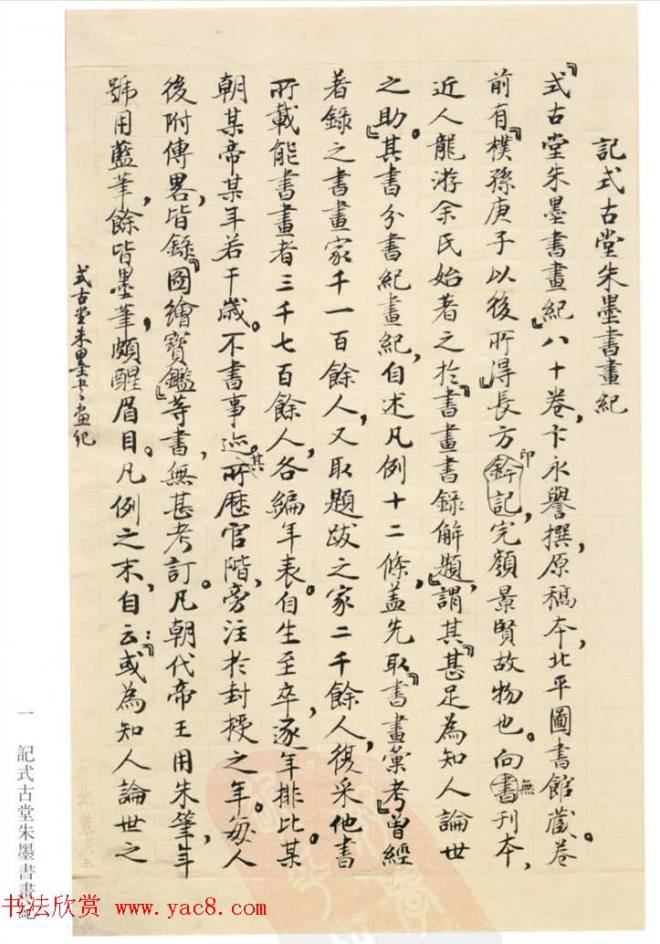 記式古堂朱墨書畫紀
『式古堂朱墨書畫紀』八十卷,卞永譽撰,原稿本,北平圖書館藏。卷
前有『樸孫庚子以後所得』長方鈐記,完顏景賢故物也。向書刊本,
印
無
近人龍游余氏始著之於『書畫書錄解題』,謂其『甚足為知人論世
之助。』其書分書紀畫紀,自述凡例十二條,蓋先取『書畫彙考』曾經
著錄之書畫家千一百餘人,又取題跋之家二千餘人,復采他書
所載能書畫者三千七百餘人,各編年表。自生至卒,逐年排比。某
朝某帝某年若干歲。不書事迹。所歷官階,旁注於封授之年。每人
其
後附傳畧,皆錄『圖繪寶鑑』等書,無甚考訂。凡朝代帝王用朱筆,年
號用藍筆,餘皆墨筆,頗醒眉目。凡例之末,自云:『或為知人論世之
式古堂朱墨書畫紀
一 記式古堂朱墨書畫紀
书法欣赏 www.yac8.com